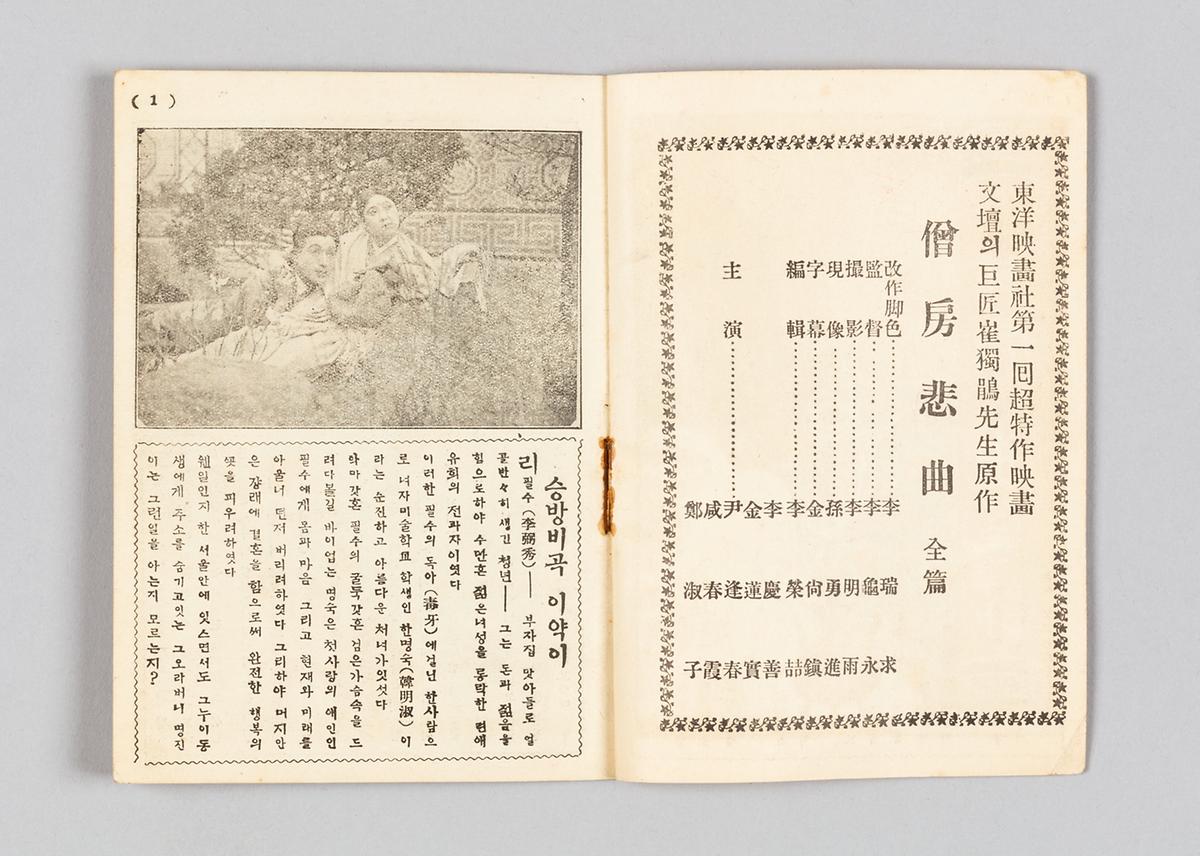 東洋映畫社第一回超特作映畫
文壇의巨匠崔獨鵑先生原作
僧房悲曲 全篇
改作脚色……………李瑞求
監督……………李龜永
撮影……………李明雨
現像……………孫勇進
字幕……………金尙鎭
編輯……………李榮喆
李慶善
金蓮實
主演……………尹逢春
咸春霞
鄭淑子
( 1 )
승방비곡 이약이
리필수(李弼秀)── 부자집 맛아들로 얼
골반々히 생긴 청년── 그는 돈과 젊음을
힘으로하야 수만흔 젊은녀성을 롱락한 련애
유희의 전과자이엿다
이러한 필수의 독아(毒牙)에걸닌 한사람으
로 녀자미술학교 학생인 한명숙(韓明淑)이
라는 순진하고 아름다운 처녀가잇섯다
악마갓흔 필수의 굴뚝갓흔 검은가슴속을 드
려다볼길 바이업는 명숙은 첫사랑의 애인인
필수에게 몸과마음 그리고 현재와 미래를
아울너 던저 버리려하엿다 그리하야 머지안
은 쟝래에 결혼을 함으로써 완전한 행복의
꼿을 피우려하엿다
웬일인지 한 서울안에 잇스면서도 그누이동
생에게 주소를 숨기고잇는 그오라버니 명진
이는 그런일을 아는지 모르는지?